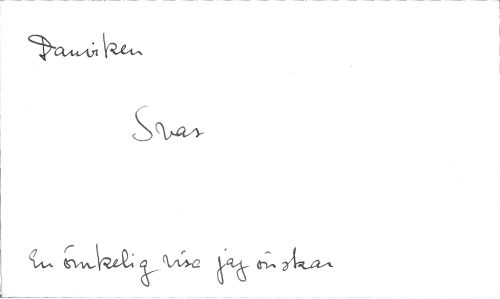 Danviken
Svar
En ömkelig visa jag önskar